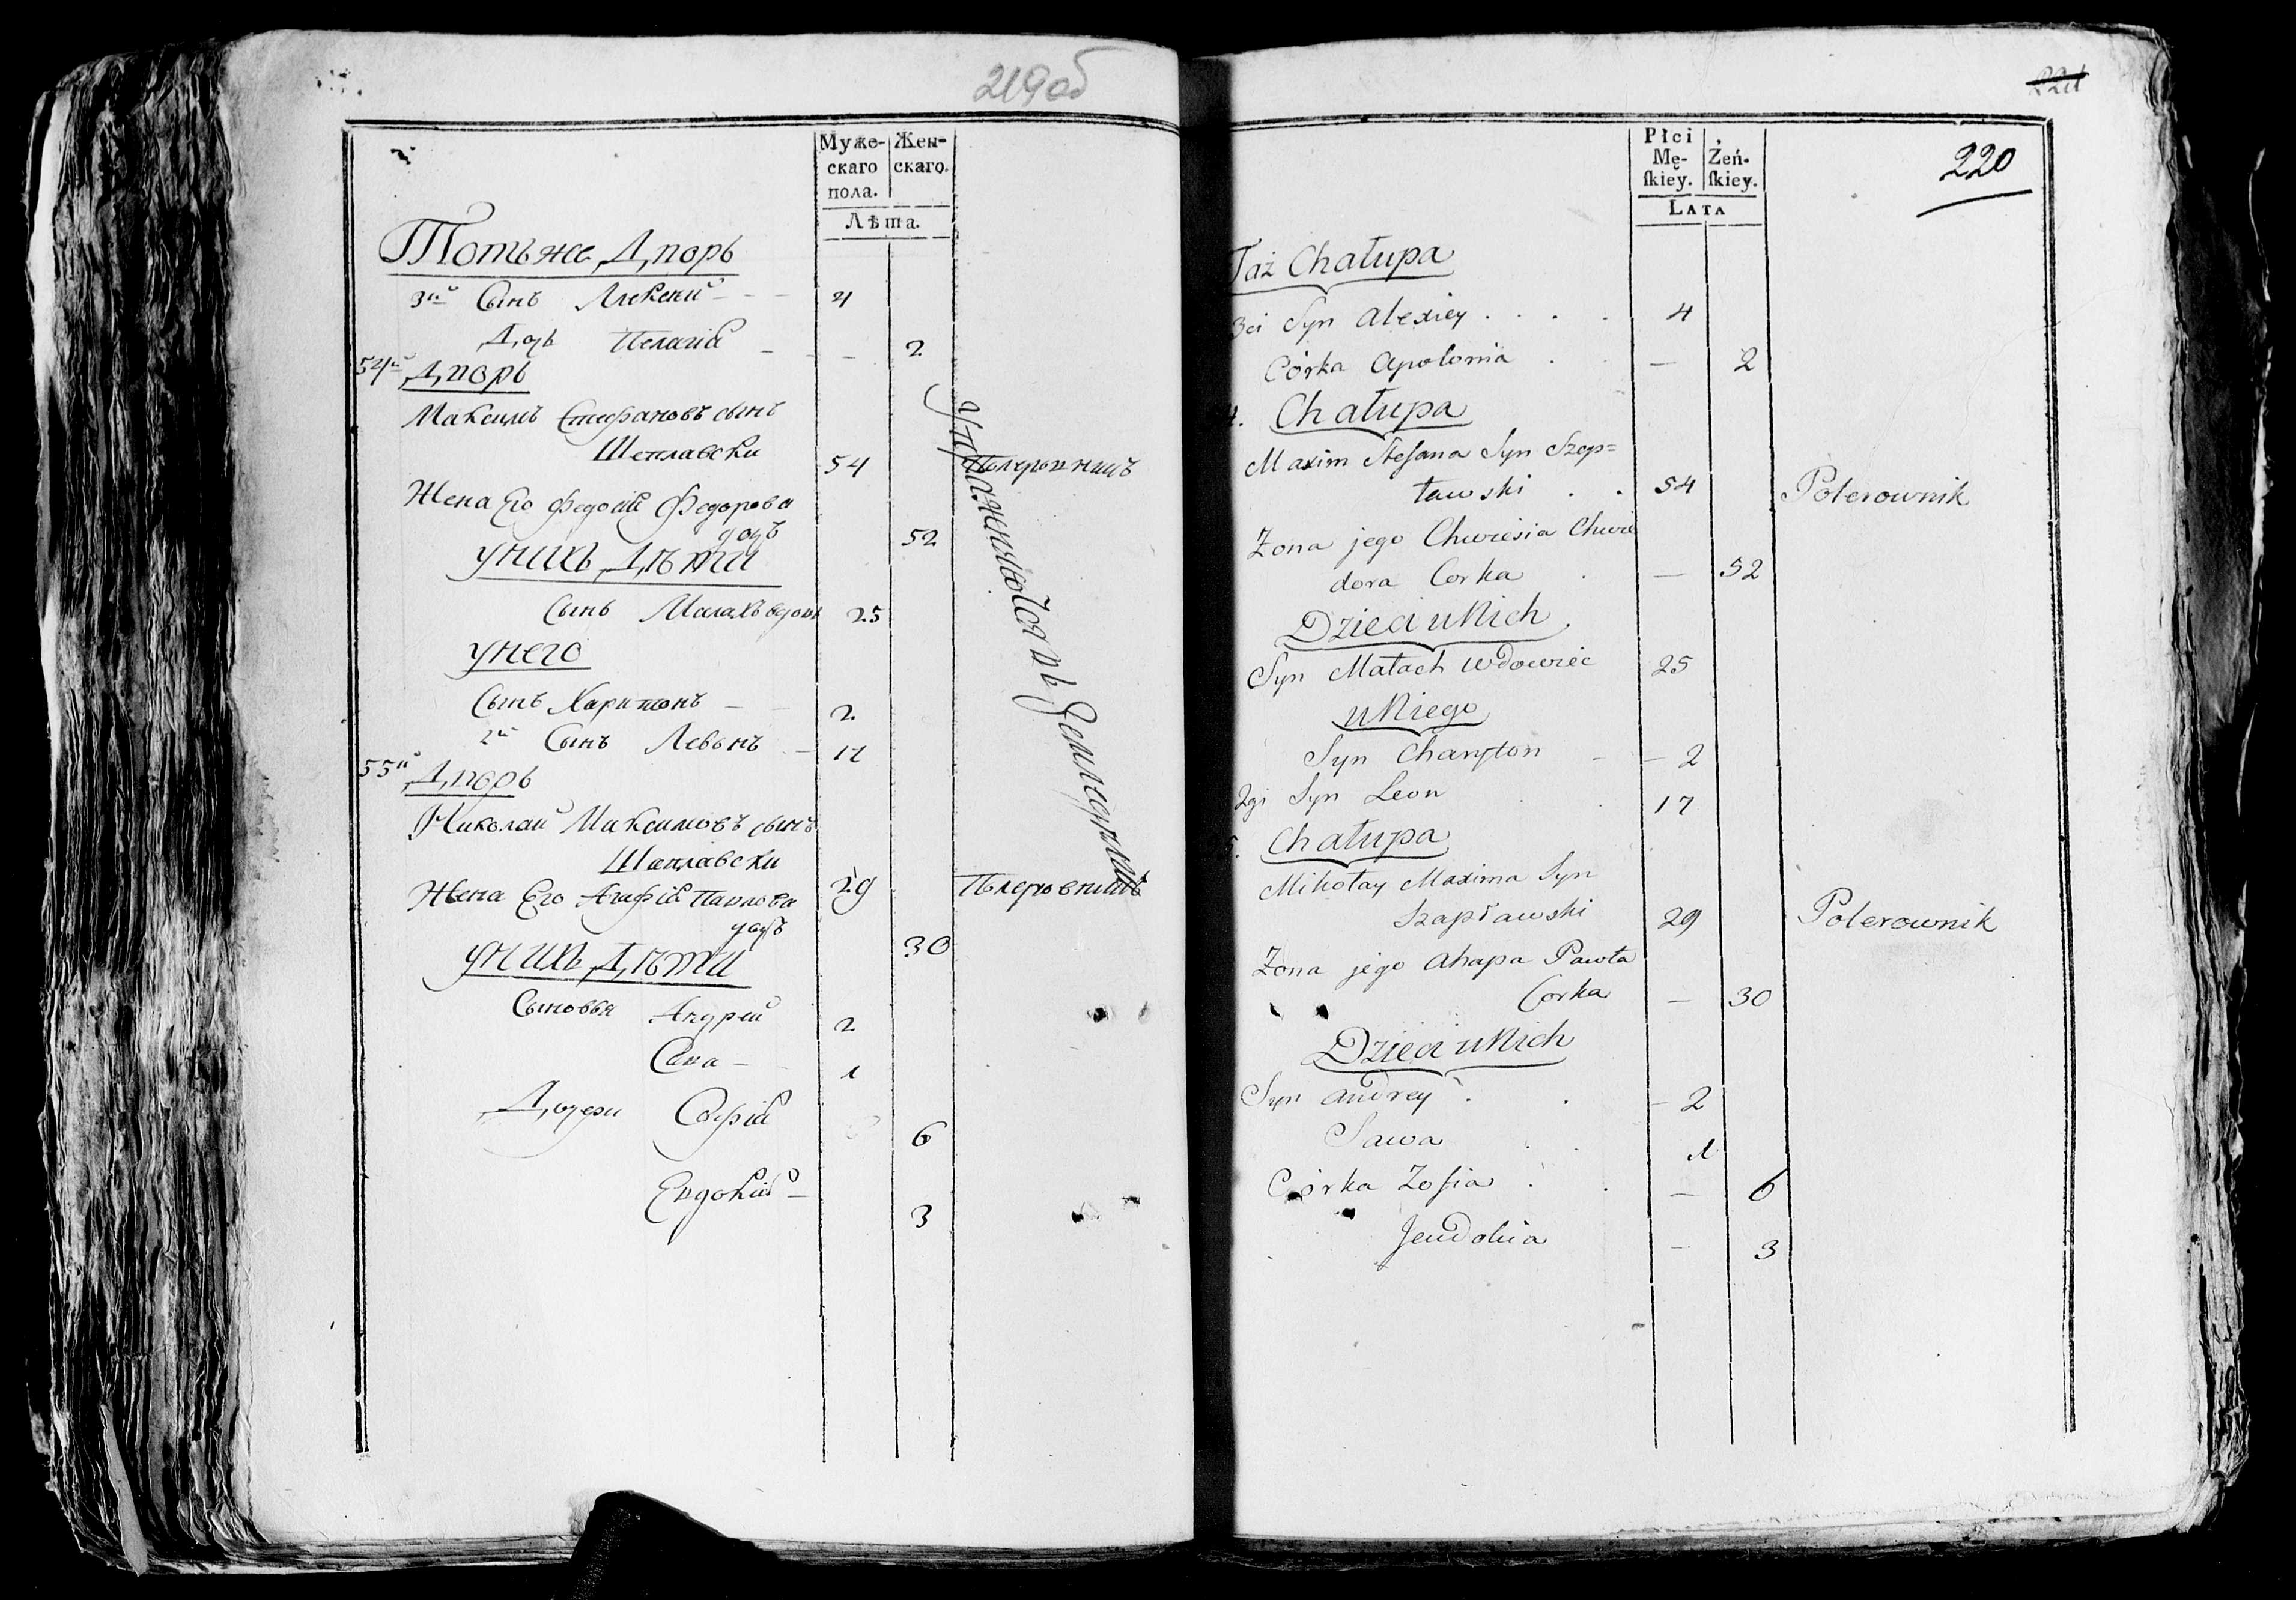 219 об
Муже-
скаго
пола.
Жен-
скаго.
Лѣта.
Тотъже Дворъ
3й Сынъ Алексей 4
Дочь Пелагия 2
54й Дворъ
Максимъ Стефановъ сынъ
Шеплавски 54
Жена Его Федосия Федорова
дочь 52
унихъ Дѣти
Сынъ Малахъ вдовъ 25
унего
Сынъ Харитонъ 2
2й Сынъ Левонъ 17
55й Дворъ
Николай Максимовъ сынъ
Шаплавски 29 Полеровникъ
Жена Его Агафия Павлова
дочь 30
унихъ Дѣти
Сыновья Андрей 2
Сава 1
Дочери София 6
Евдокия 3
Упражняются в Земледелии
221
220
Płci
Mę-
ſkiey.
Żeń-
ſkiey.
LATA
Taż Chałupa
3ci Syn Alexiey 4
Córka Apolonia 2
4. Chałupa
Maxim Stefana Syn Szep=
ławski 54 Polerownik
Zona jego Chwiesia Chwie
dora Corka 52
Dzieci u Nich
Syn Małach wdowiec 25
u Niego
Syn Charyton 2
2gi Syn Leon 17
5. Chałupa
Mikołay Maxima Syn
Szapławski 29 Polerownik
Zona jego Ahapa Pawła
Corka 30
Dzieci u Nich
Syn Andrey 2
Sawa 1
Córka Zofia 6
Jewdokia 3